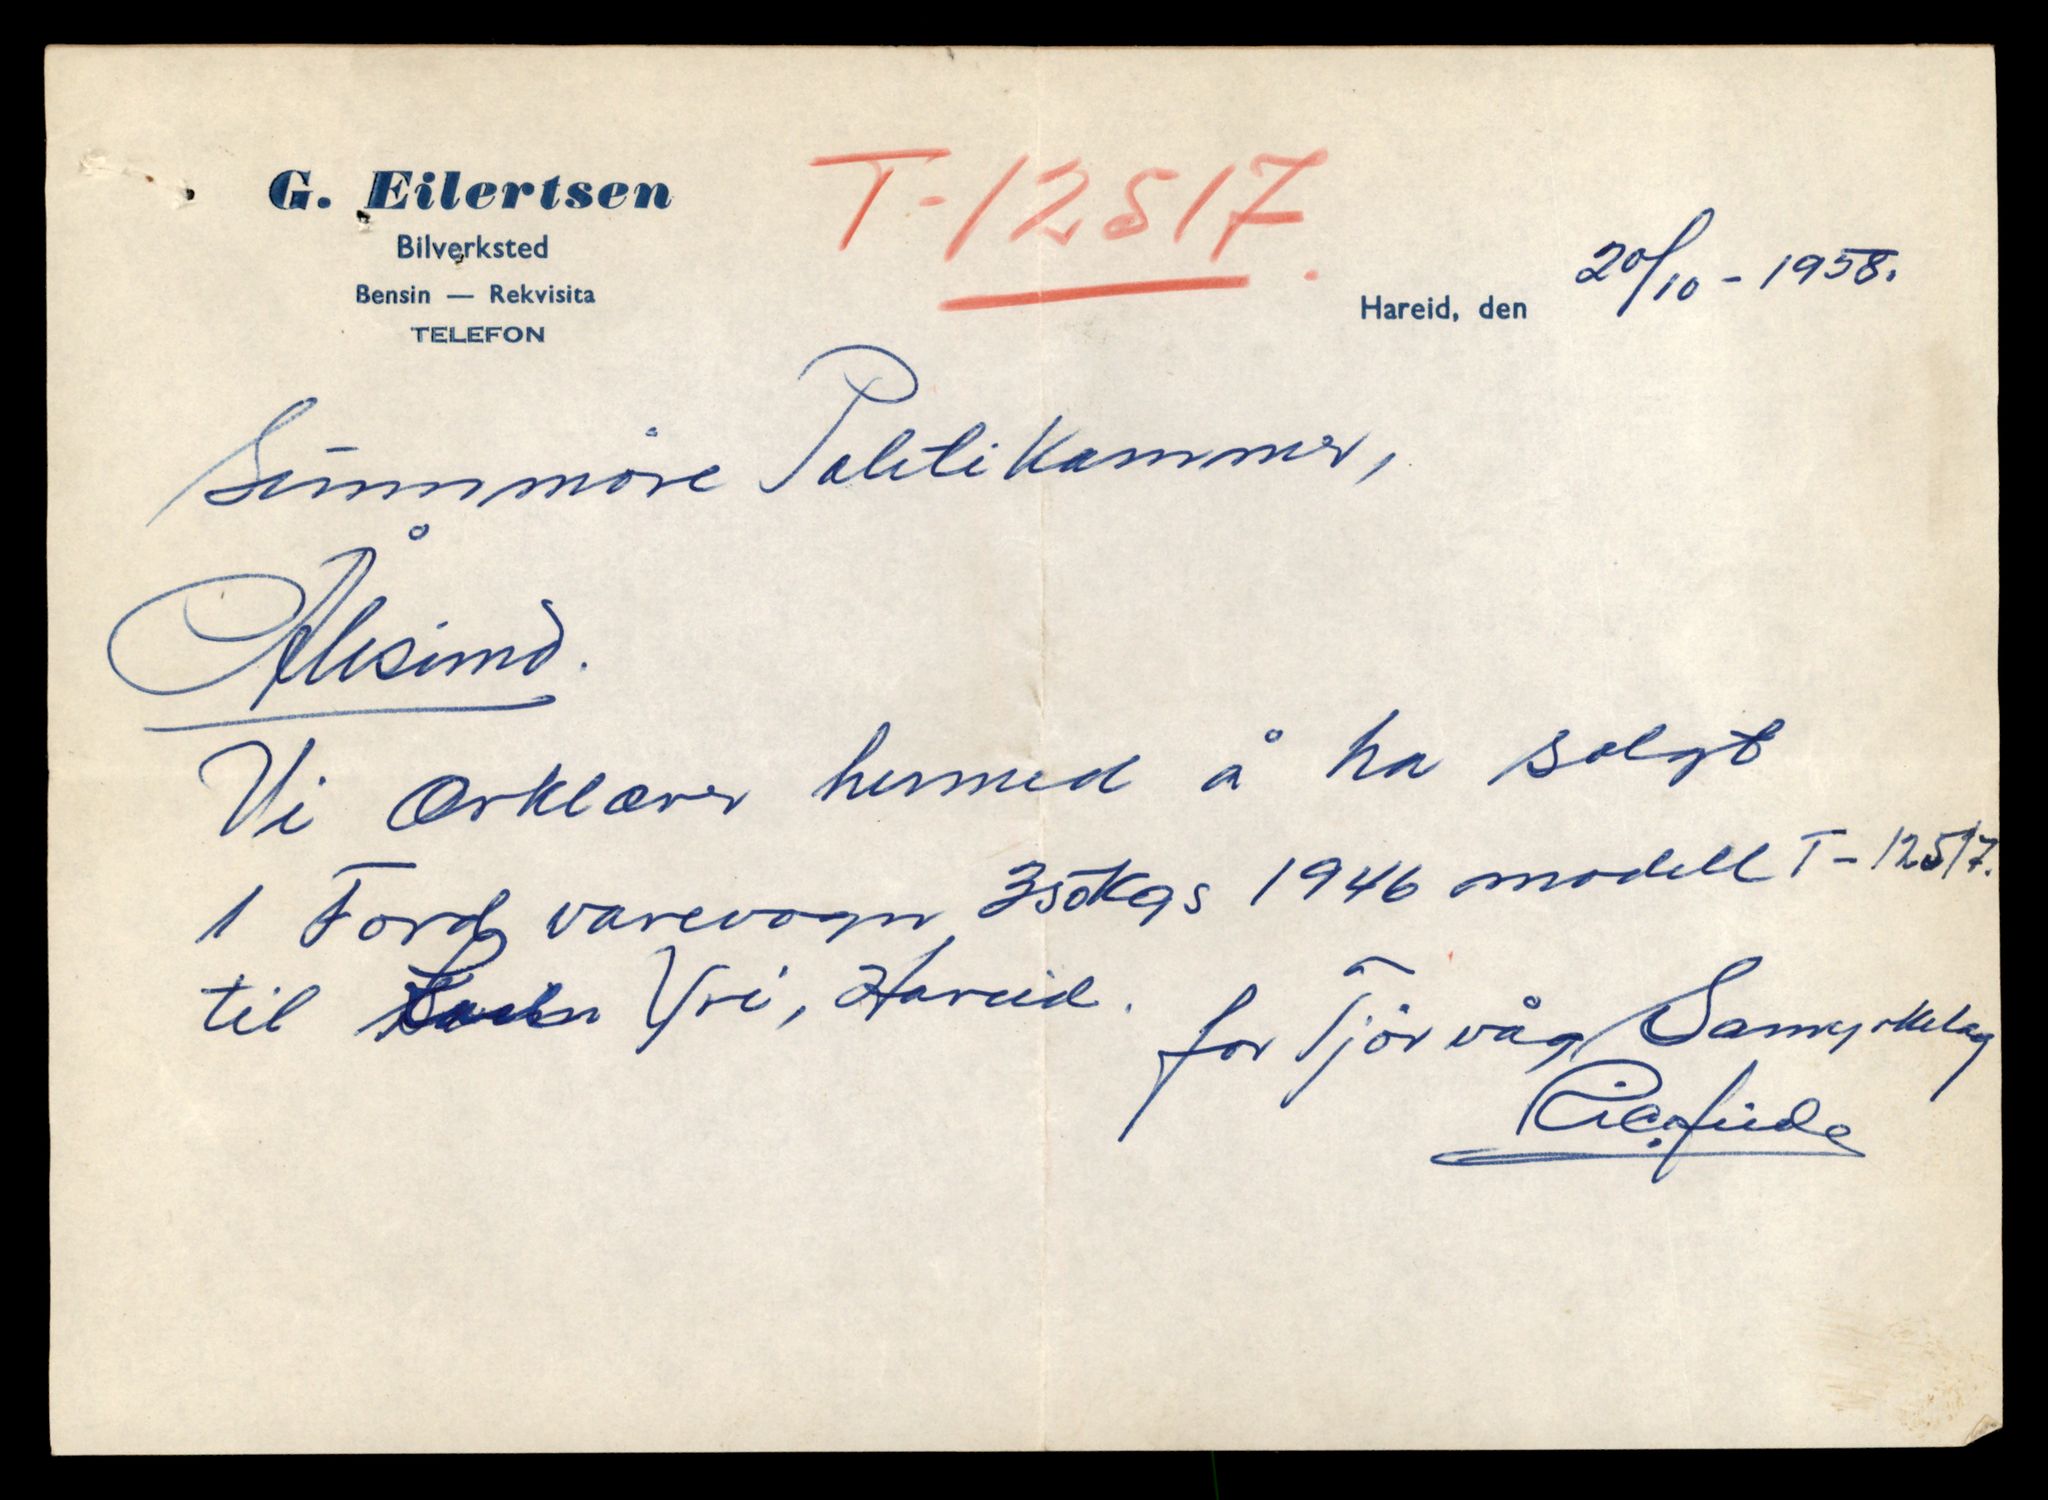 G. Eilertsen
Bilverksted
Bensin — Rekvisita
TELEFON
T-12517.
Hareid, den 20/10 - 1958.
Sunnmöre Politikammer,
Ålesund.
Vi erklærer hermed å ha solgt
1 Ford varevogn 350 kgs 1946 modell T-12517.
til Yri, Hareid.
for Tjörvåg Samyrkelag